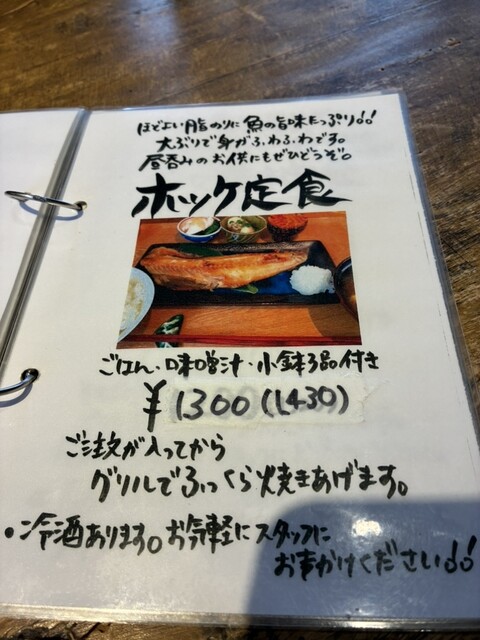 ほどよい脂のりに魚の旨味たっぷり!!
大ぶりで身がふわふわです。
昼呑みのお供にもぜひどうぞ。
ホッケ定食
ごはん・味噌汁・小鉢3品付き
¥1300(1,430)
ご注文が入ってから
グリルでふっくら焼きあげます。
•冷酒あります。お気軽にスタッフに
お声かけください!!